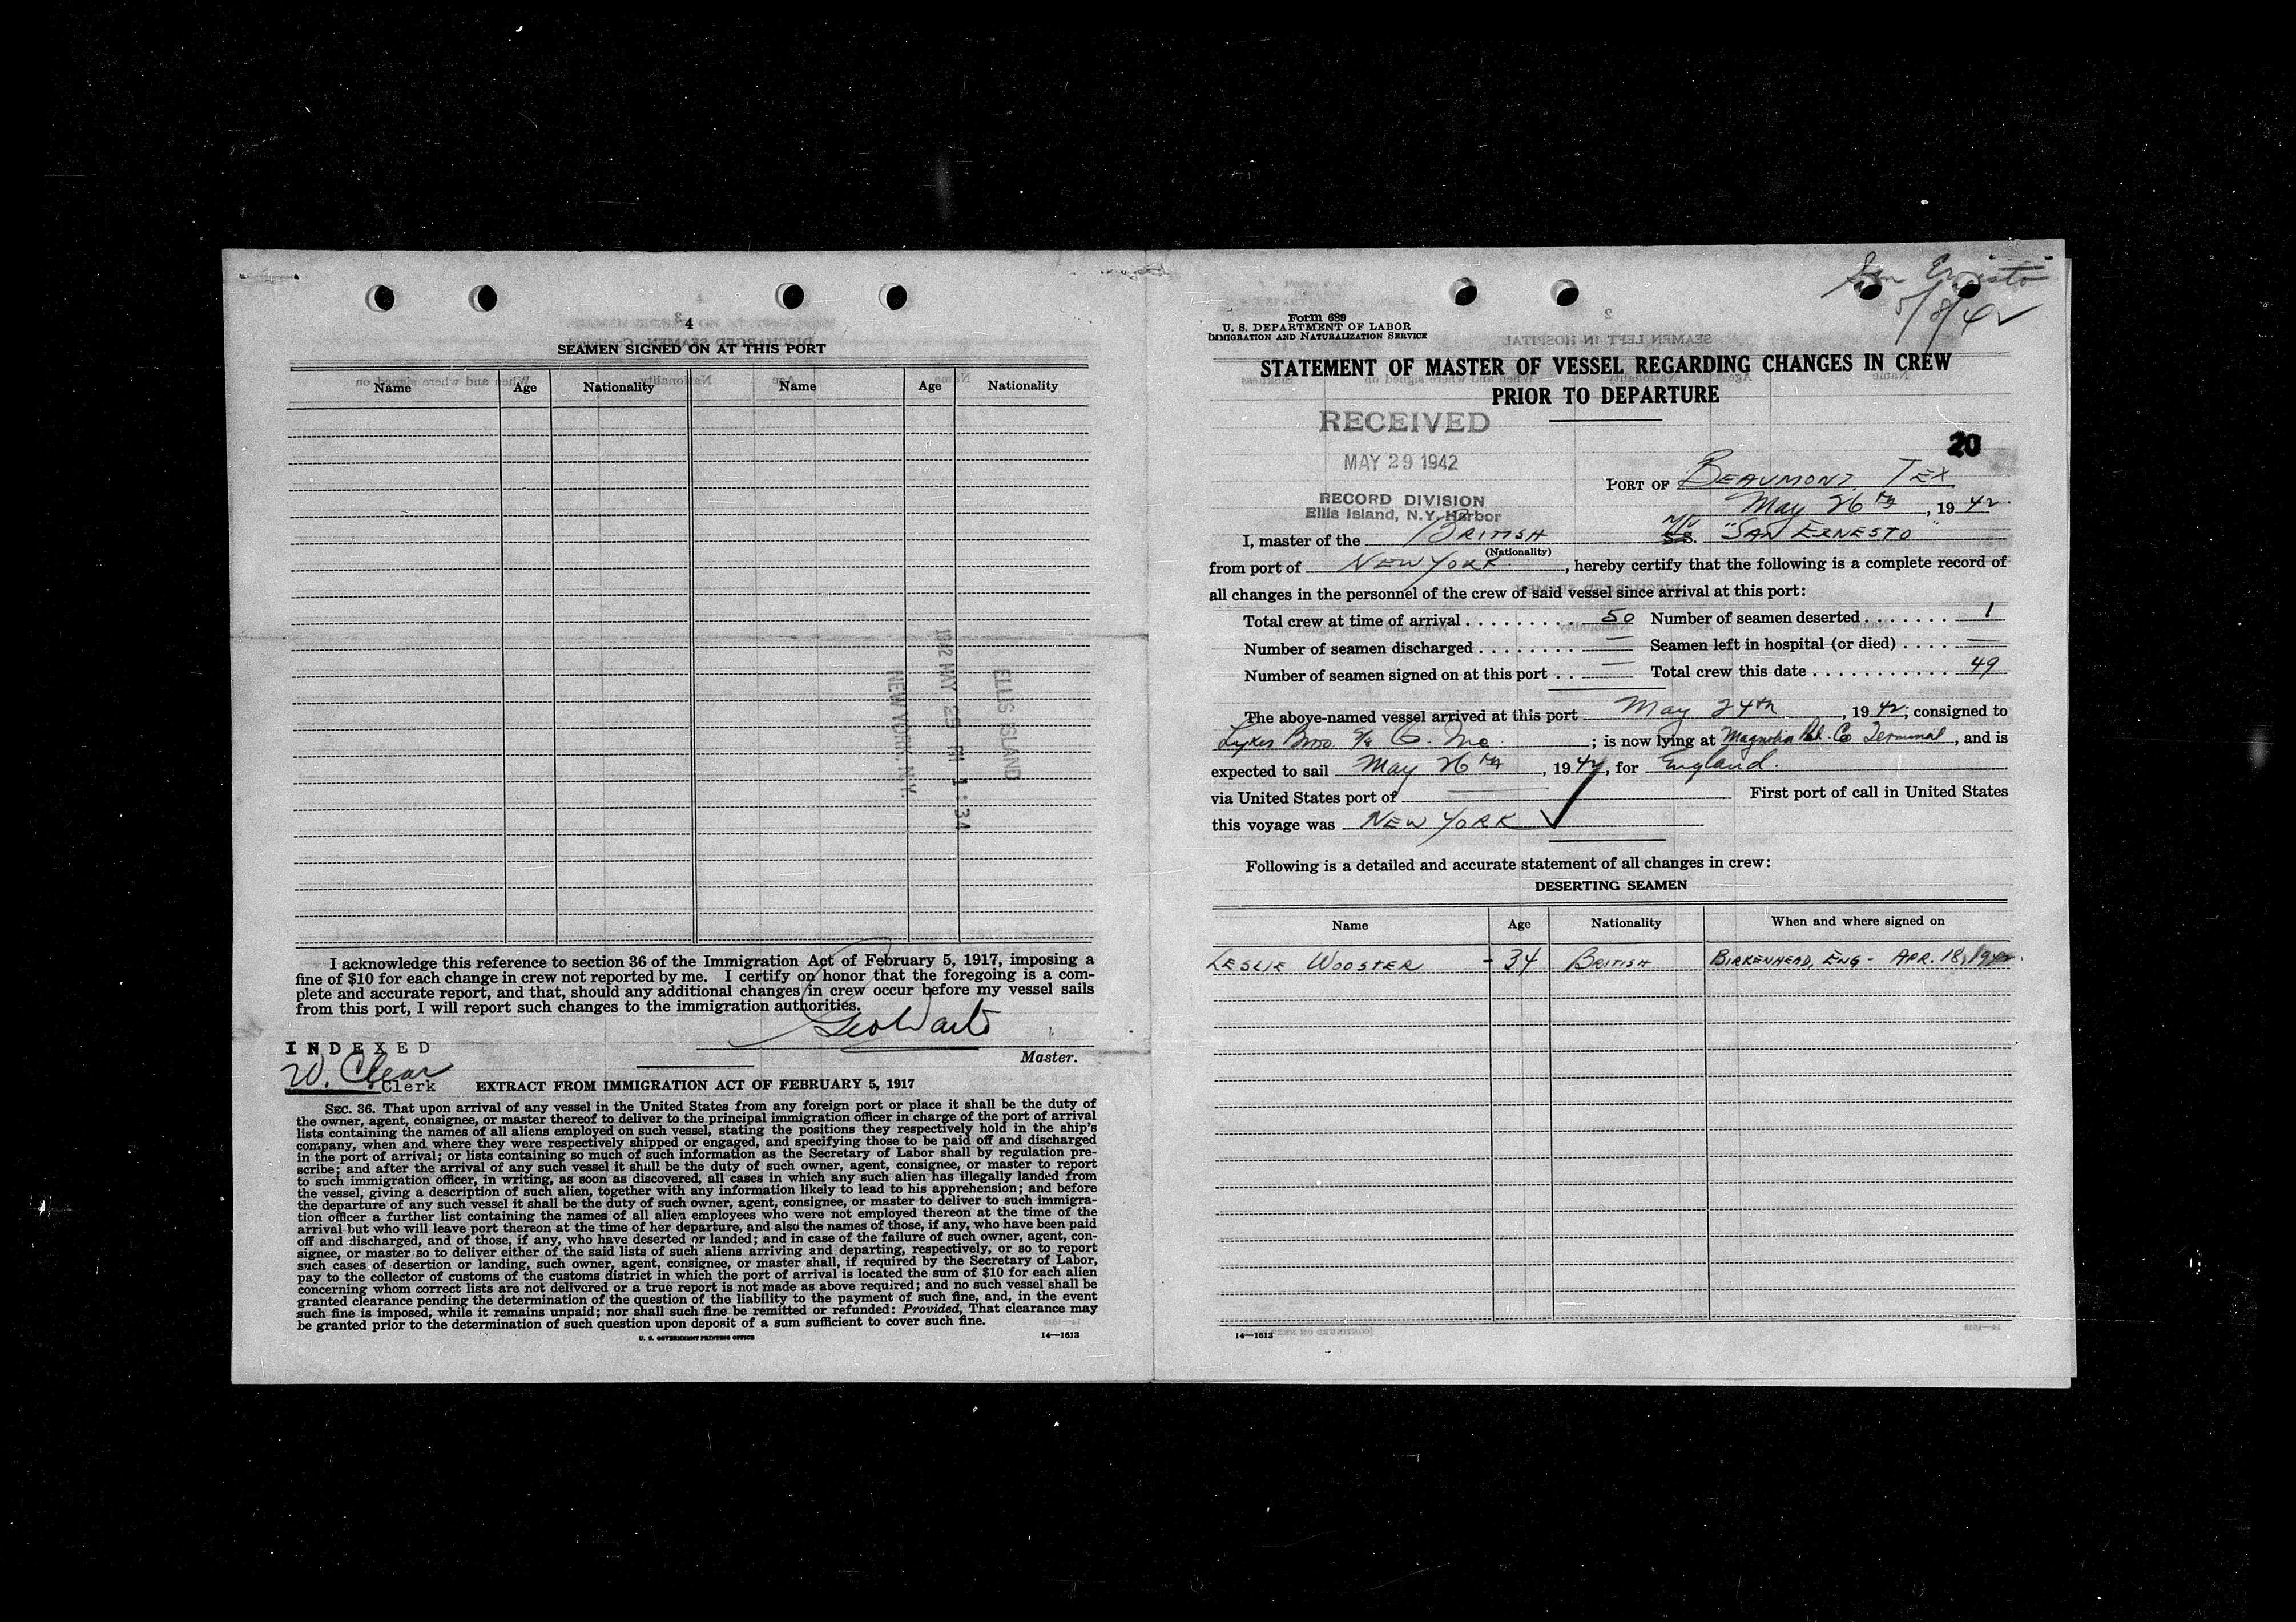 4
SEAMEN SIGNED ON AT THIS PORT
Name Age Nationality Name Age Nationality
ELLIS ISLAND
1942 MAY 29 PM 1:34
NEW YORK, N.Y.
I acknowledge this reference to section 36 of the Immigration Act of February 5, 1917, imposing a
fine of $10 for each change in crew not reported by me. I certify on honor that the foregoing is a com-
plete and accurate report, and that, should any additional changes in crew occur before my vessel sails
from this port, I will report such changes to the immigration authorities.
Master.
INDEXED
W. Clear
Clerk
EXTRACT FROM IMMIGRATION ACT OF FEBRUARY 5, 1917
SEC. 36. That upon arrival of any vessel in the United States from any foreign port or place it shall be the duty of
the owner, agent, consignee, or master thereof to deliver to the principal immigration officer in charge of the port of arrival
lists containing the names of all aliens employed on such vessel, stating the positions they respectively hold in the ship's
company, when and where they were respectively shipped or engaged, and specifying those to be paid off and discharged
in the port of arrival; or lists containing so much of such information as the Secretary of Labor shall by regulation pre-
scribe; and after the arrival of any such vessel it shall be the duty of such owner, agent, consignee, or master to report
to such immigration officer, in writing, as soon as discovered, all cases in which any such alien has illegally landed from
the vessel, giving a description of such alien, together with any information likely to lead to his apprehension; and before
the departure of any such vessel it shall be the duty of such owner, agent, consignee, or master to deliver to such immigra-
tion officer a further list containing the names of all alien employees who were not employed thereon at the time of the
arrival but who will leave port thereon at the time of her departure, and also the names of those, if any, who have been paid
off and discharged, and of those, if any, who have deserted or landed; and in case of the failure of such owner, agent, con-
signee, or master so to deliver either of the said lists of such aliens arriving and departing, respectively, or so to report
such cases of desertion or landing, such owner, agent, consignee, or master shall, if required by the Secretary of Labor,
pay to the collector of customs of the customs district in which the port of arrival is located the sum of $10 for each alien
concerning whom correct lists are not delivered or a true report is not made as above required; and no such vessel shall be
granted clearance pending the determination of the question of the liability to the payment of such fine, and, in the event
such fine is imposed, while it remains unpaid; nor shall such fine be remitted or refunded: Provided, That clearance may
be granted prior to the determination of such question upon deposit of a sum sufficient to cover such fine.
U. S. GOVERNMENT PRINTING OFFICE 14—1613
San Ernesto
5/8/42
Form 689
U. S. DEPARTMENT OF LABOR
IMMIGRATION AND NATURALIZATION SERVICE
STATEMENT OF MASTER OF VESSEL REGARDING CHANGES IN CREW
PRIOR TO DEPARTURE
RECEIVED
MAY 29 1942
RECORD DIVISION
Ellis Island, N.Y. Harbor
20
PORT OF BEAUMONT, TEX
May 26th, 1942
I, master of the BRITISH M/V S.S. "SAN ERNESTO"
(Nationality)
from port of NEW YORK, hereby certify that the following is a complete record of
all changes in the personnel of the crew of said vessel since arrival at this port:
Total crew at time of arrival 50 Number of seamen deserted 1
Number of seamen discharged — Seamen left in hospital (or died) —
Number of seamen signed on at this port — Total crew this date 49
The above-named vessel arrived at this port May 24th, 1942; consigned to
Lykes Bros. S/S Co. Inc.; is now lying at Magnolia Pet. Co Terminal, and is
expected to sail May 26th, 1942, for England.
via United States port of — First port of call in United States
this voyage was NEW YORK
Following is a detailed and accurate statement of all changes in crew:
DESERTING SEAMEN
Name Age Nationality When and where signed on
LESLIE WOOSTER - 34 BRITISH BIRKENHEAD, ENG - APR. 18, 1942.
14—1613